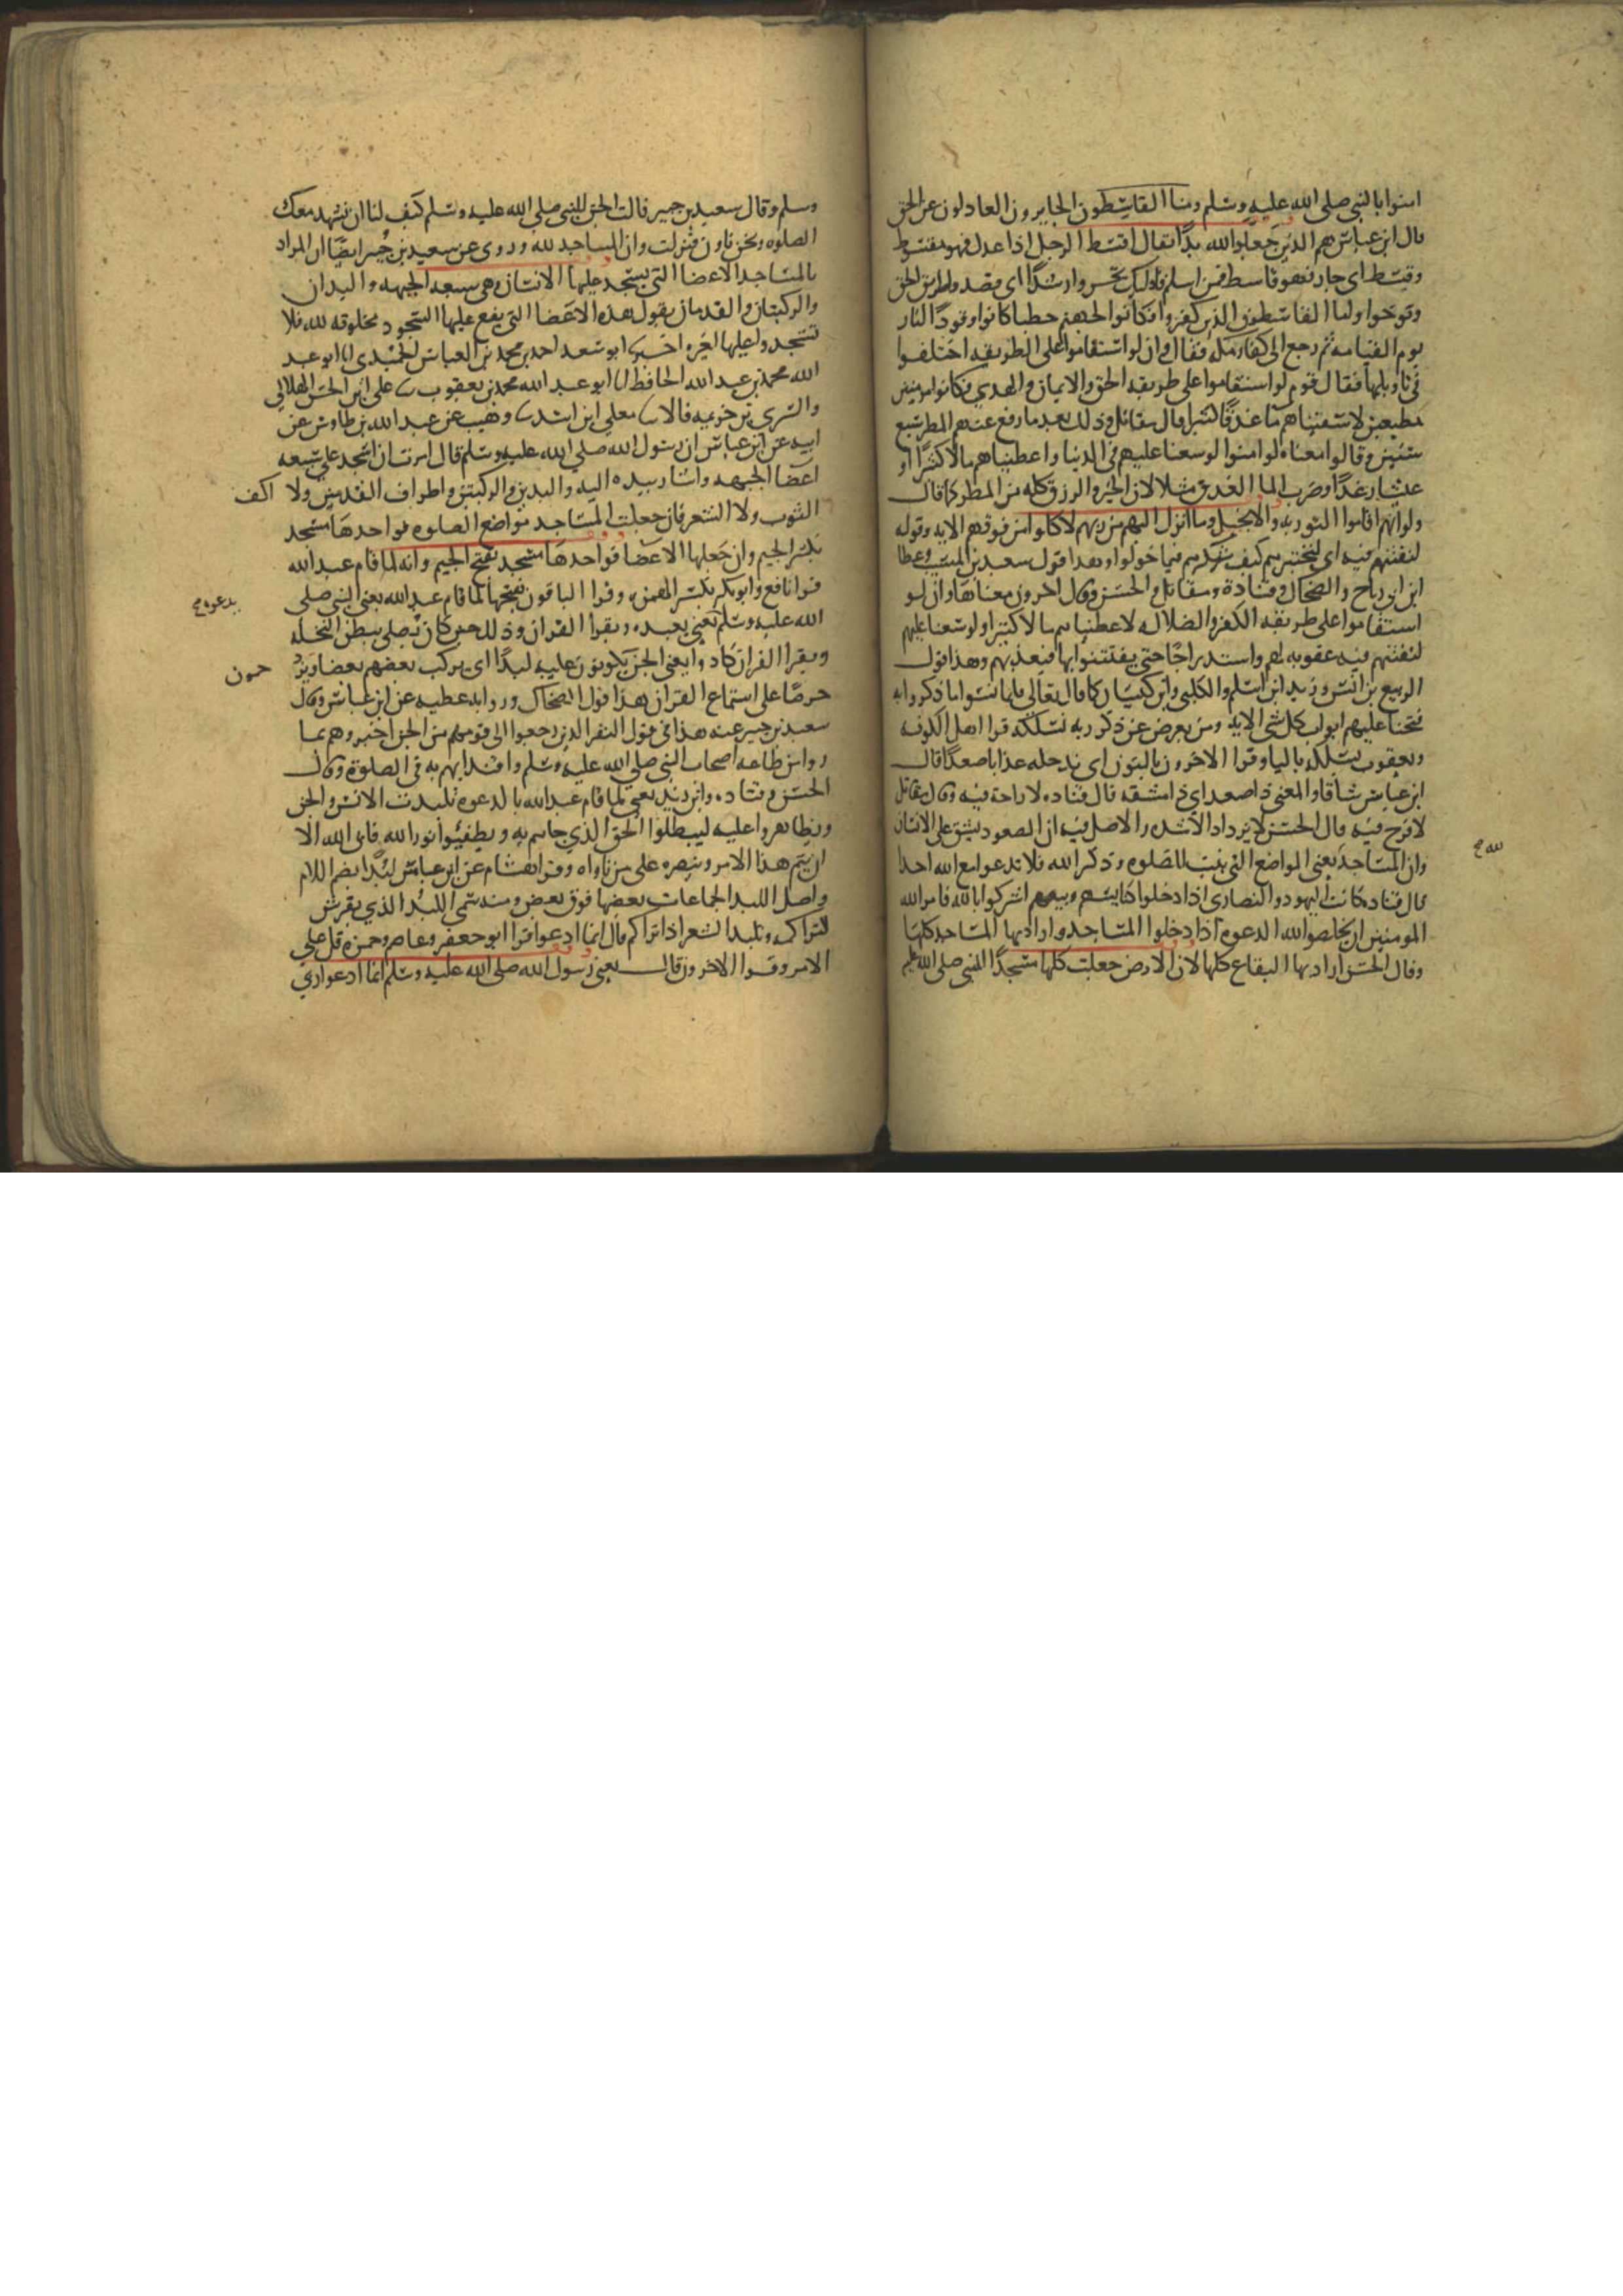 امنوا بالنبي صلى الله عليه وسلم ومنا القاسطون الجايرون العادلون عن الحق
قال ابن عباس هم الذين جعلوا لله ندا يقال اقسط الرجل اذا عدل فهو مقسط
وقسط اى جار فهو قاسط فمن اسلم فاوليك تحروا رشدا اى قصدوا طريق الحق
وتوخوا واما القاسطون الذين كفروا فكانوا لجهنم حطبا كانوا وقودا النار
يوم القيامه ثم رجع الى كفار مكه فقال وان لو استقاموا على الطريقه اختلفوا
في تاويلها فقال قوم لو استقاموا على طريقه الحق والايمان والهدي فكانوا مومنين
مطيعين لاسقيناهم ما غدقا كثيرا قال مقاتل وذلك بعد ما رفع عنهم المطر سبع
سنين وقالوا معناه لو امنوا لوسعنا عليهم في الدنيا واعطيناهم مالا كثيرا و
عيشا رغدا وضرب الما الغدق مثلا لان الخير والرزق كله من المطر كما قال
ولو انهم اقاموا التوريه والانجيل وما انزل اليهم من ربهم لاكلوا من فوقهم الايه وقوله
لنفتنهم فيه اى لنختبرهم كيف شكرهم فيما خولوا وهذا قول سعيد بن المسيب وعطا
ابن ابي رباح والضحاك وقتادة ومقاتل والحسن وقال اخرون معناها وان لو
استقاموا على طريقه الكفر والضلاله لاعطيناهم مالا كثيرا ولوسعنا عليهم
لنفتنهم فيه عقوبه لهم واستدراجا حتى يفتتنوا بها فنعذبهم وهذا قول
الربيع بن انس وزيد ابن اسلم والكلبي وابن كيسان كما قال تعالي فلما نسوا ما ذكروا به
فتحنا عليهم ابواب كل شى الايه ومن يعرض عن ذكر ربه نسلكه قرا اهل الكوفه
ويعقوب يسلكه باليا وقرا الاخرون بالنون اى ندخله عذابا صعدا قال
ابن عباس شاقا والمعنى ذا صعد اى ذا مشقه قال قتاده لا راحة فيه وقال مقاتل
لا فرح فيه قال الحسن لا يزداد الا شده والاصل فيه ان الصعود يشق على الانسان
وان المساجد يعنى المواضع التى بنيت للصلوه وذكر الله فلا تدعوا مع الله احدا
لله صح
قال قتاده كانت اليهود والنصارى اذا دخلوا كنايسهم وبيعهم اشركوا بالله فامر الله
المومنين ان يخلصوا لله الدعوه اذا دخلوا المساجد واراد بها المساجد كلها
وقال الحسن اراد بها البقاع كلها لان الارض جعلت كلها مسجدا للنبي صلى الله عليه
وسلم وقال سعيد بن جبير قالت الجن للنبي صلى الله عليه وسلم كيف لنا ان نشهد معك
الصلوه ونحن ناون فنزلت وان المساجد لله وروى عن سعيد بن جبير ايضا ان المراد
بالمساجد الاعضا التى يسجد عليها الانسان وهى سبعه الجبهه واليدان
والركبتان والقدمان يقول هذه الاعضا التى يقع عليها السجود مخلوقه لله فلا
تسجدوا عليها لغيره ابو سعد احمد بن محمد بن العباس الحميدى انا ابو عبد
الله محمد بن عبد الله الحافظ انا ابو عبد الله محمد بن يعقوب على ابن الحسن الهلالي
والسري بن خزيمه قالا معلى ابن اسد وهيب عن عبد الله بن طاوس عن
ابيه عن ابن عباس ان رسول الله صلي الله عليه وسلم قال امرت ان اسجد على سبعه
اعضا الجبهه واشار بيده اليه واليدين والركبتين واطراف القدمين ولا اكف
الثوب ولا الشعر فان جعلت المساجد مواضع الصلوه فواحدها مسجد
بكسر الجيم وان جعلها الاعضا فواحدها مسجد بفتح الجيم وانه لما قام عبد الله
قرا نافع وابو بكر بكسر الهمزه وقرا الباقون بفتحها لما قام عبد الله يعنى النبي صلى
يدعوه صح
الله عليه وسلم يعني يعبده ويقرا القران وذلك حين كان يصلى ببطن النخله
ويقرا القران كادوا يعني الجن يكونون عليه لبدا اى يركب بعضهم بعضا ويزد حمون
حرصا على استماع القران هذا قول الضحاك وروايه عطيه عن ابن عباس وقال
سعيد بن جبير عنه هذا من قول النفر الذين رجعوا الى قومهم من الجن اخبروهم بما
راوا من طاعه اصحاب النبي صلي الله عليه وسلم واقتدايهم به في الصلوة وقال
الحسن وقتاده وابن زيد يعنى لما قام عبد الله بالدعوه تلبدت الانس والجن
وتظاهروا عليه ليبطلوا الحق الذي جاهم به ويطفيوا نور الله فابى الله الا
ان يتم هذا الامر وينصره على من ناواه وقرا هشام عن ابن عباس لبدا بضم اللام
واصل اللبد الجماعات بعضها فوق بعض ومنه سمى اللبد الذي يفرش
لتراكمه وتلبد الشعر اذا تراكم قال انما ادعوا قرا ابو جعفر وعاصم وحمزه قل علي
الامر وقرا الاخرون قال يعنى رسول الله صلى الله عليه وسلم انما ادعوا ربي